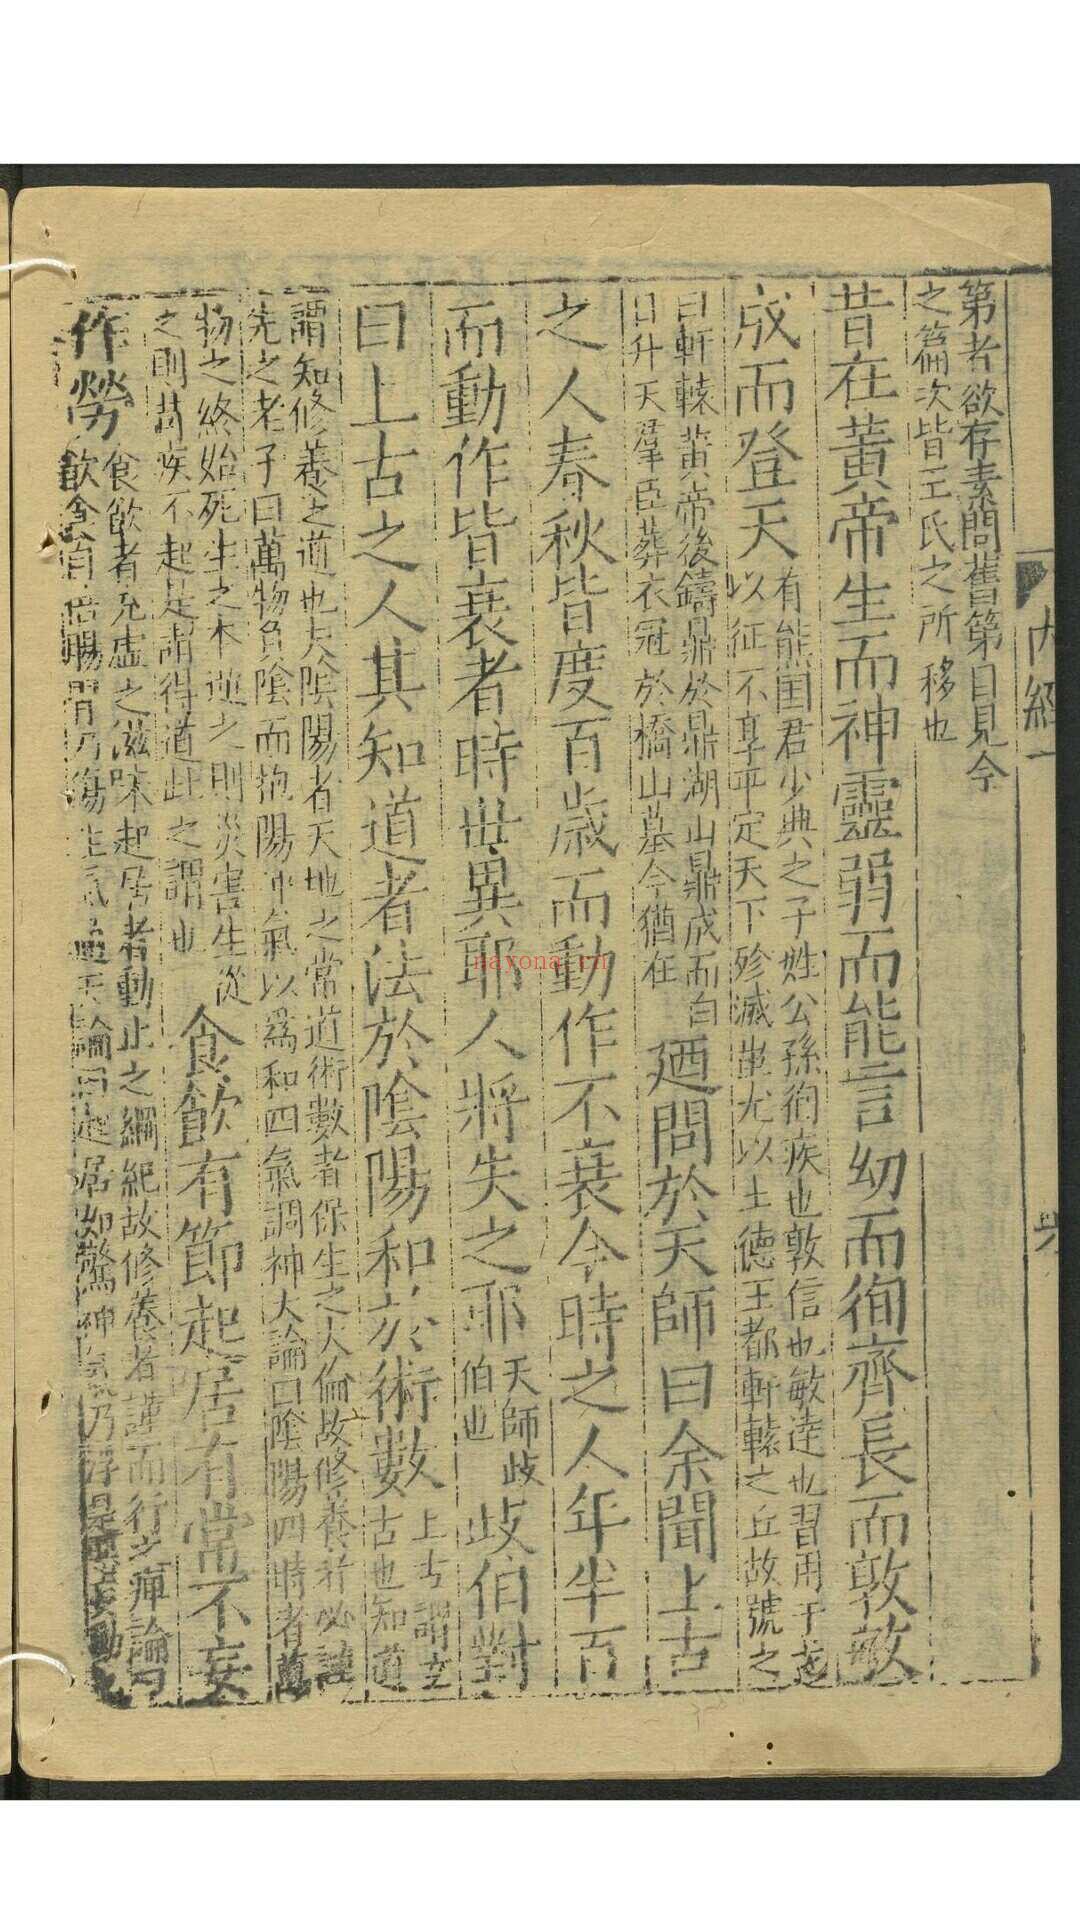 第者欲存素問舊第目見今
之篇次皆王氏之所移也
昔在黃帝生而神靈弱而能言幼而徇齊長而敦敏
成而登天
有熊国君少典之子姓公孫徇疾也敦信也敏達也習用干戈
以征不享平定天下殄滅蚩尤以土德王都軒轅之丘故號之
曰軒轅黃帝後鑄鼎於鼎湖山鼎成而白
日升天羣臣葬衣冠於橋山墓今猶在
廼問於天師曰余聞上古
之人春秋皆度百歲而動作不衰今時之人年半百
而動作皆衰者時世異耶人將失之耶
天師歧
伯也
歧伯對
曰上古之人其知道者法於陰陽和於術數
上古謂玄
古也知道
謂知修養之道也夫陰陽者天地之常道術數者保生之大倫故修養者必謹
先之老子曰萬物負陰而抱陽沖氣以爲和四氣調神大論曰陰陽四時者萬
物之終始死生之本逆之則災害生從
之則苛疾不起是謂得道此之謂也
食飲有節起居有常不妄
作勞
食飲者充虛之滋味起居者動止之綱紀故修養者謹而行之痺論曰
飲食自倍腸胃乃傷生氣通天論曰起居如驚神氣乃浮是惡妄動
內經一
nayona.cn